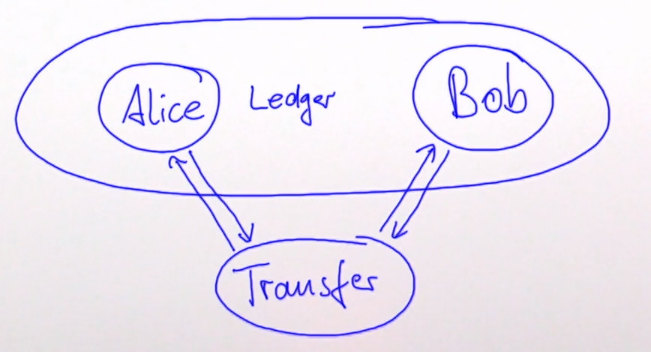 Alice
Ledger
Bob
Transfer